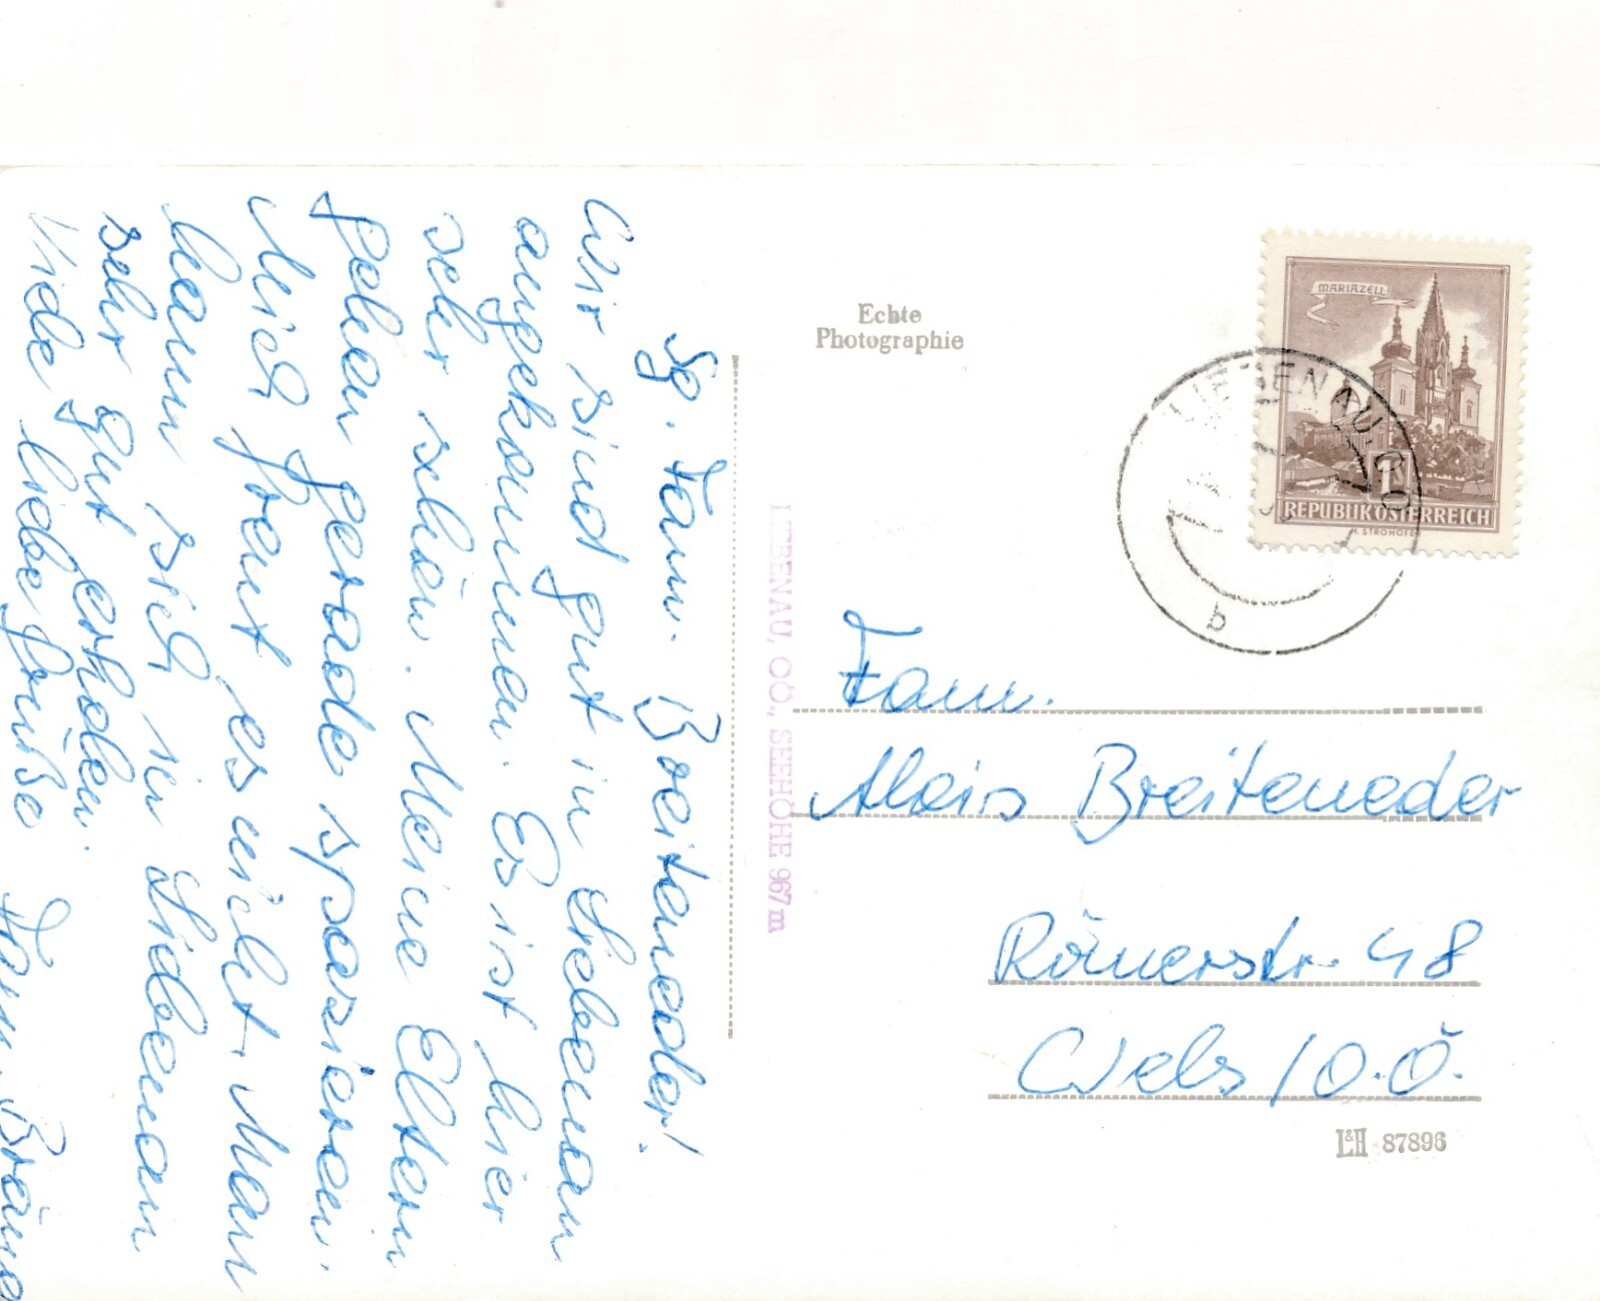 Sg. Fam. Breiteneder!
Wir sind gut in Liebenau
angekommen. Es ist hier
sehr schön. Meine Eltern
gehen gerade spazieren.
Mich freut es nicht. Man
kann sich in Liebenau
sehr gut erholen.
Viele liebe Grüße Fam.
Echte
Photographie
MARIAZELL
1
REPUBLIK ÖSTERREICH
LIEBENAU, OÖ
b
LIEBENAU, OÖ., SEEHÖHE 967 m
Fam.
Alois Breiteneder
Römerstr. 48
Wels / O.Ö.
L&H 87896